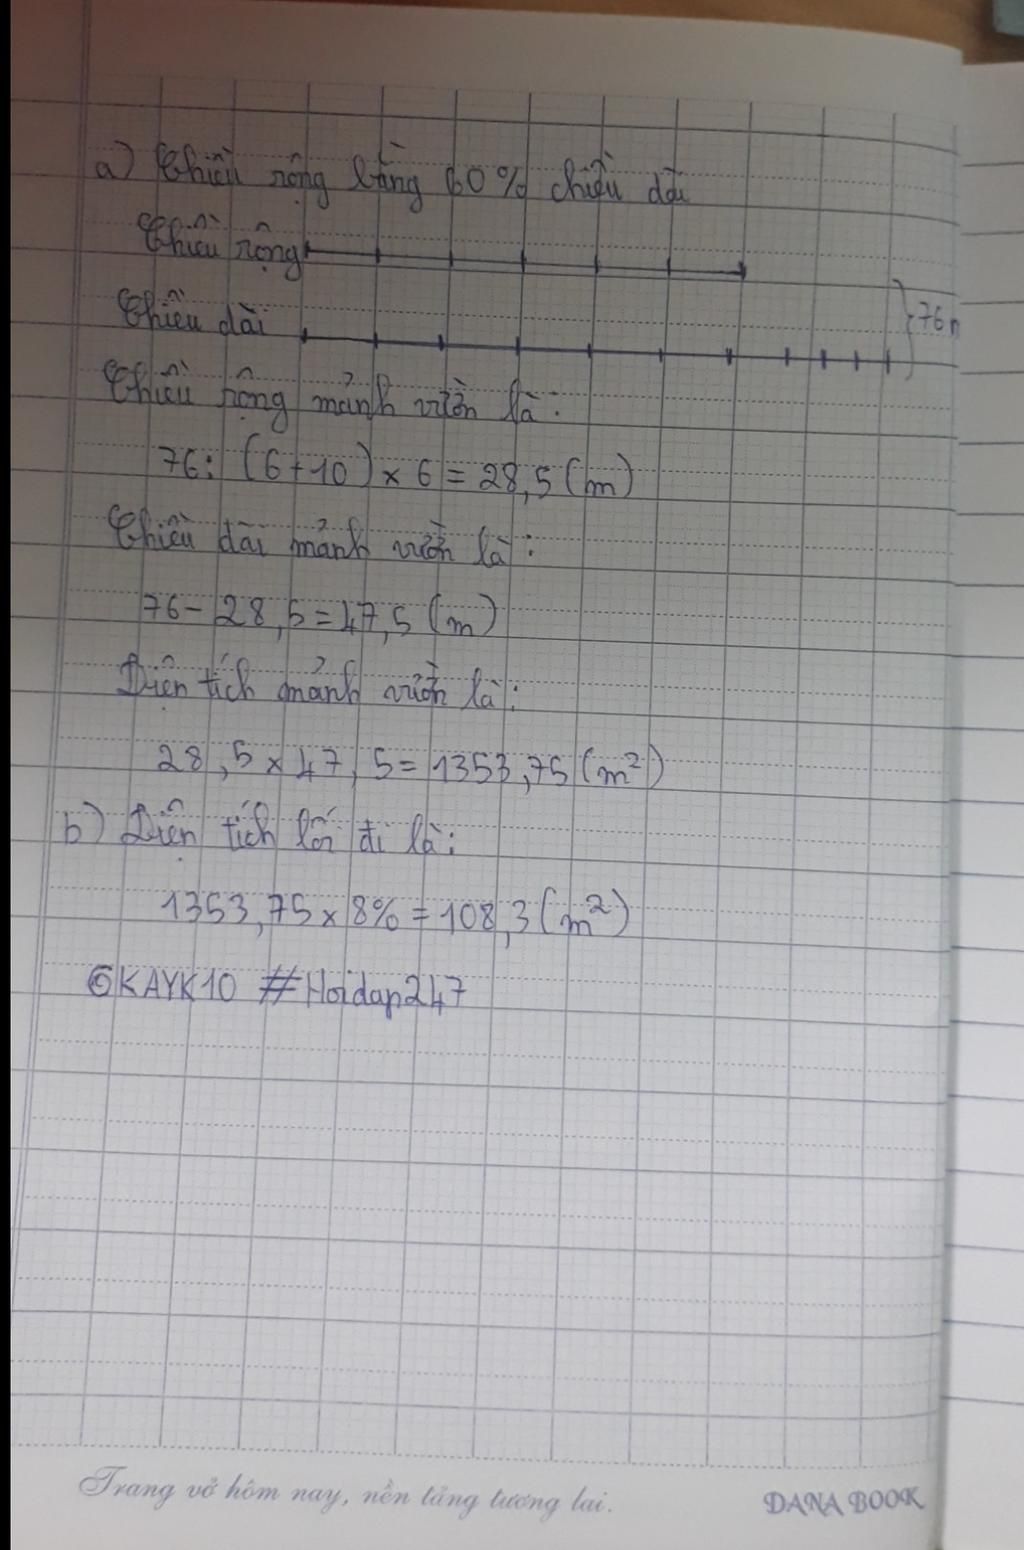 a) Chiều rộng bằng 60% chiều dài
Chiều rộng
Chiều dài
76m
Chiều rộng mảnh vườn là:
76: (6+10) x 6 = 28,5 (m)
Chiều dài mảnh vườn là:
76 - 28,5 = 47,5 (m)
Diện tích mảnh vườn là:
28,5 x 47,5 = 1353,75 (m²)
b) Diện tích lối đi là:
1353,75 x 8% = 108,3 (m²)
©KAYK10 #Hoidap247
Trang vở hôm nay, nền tảng tương lai.
DANA BOOK